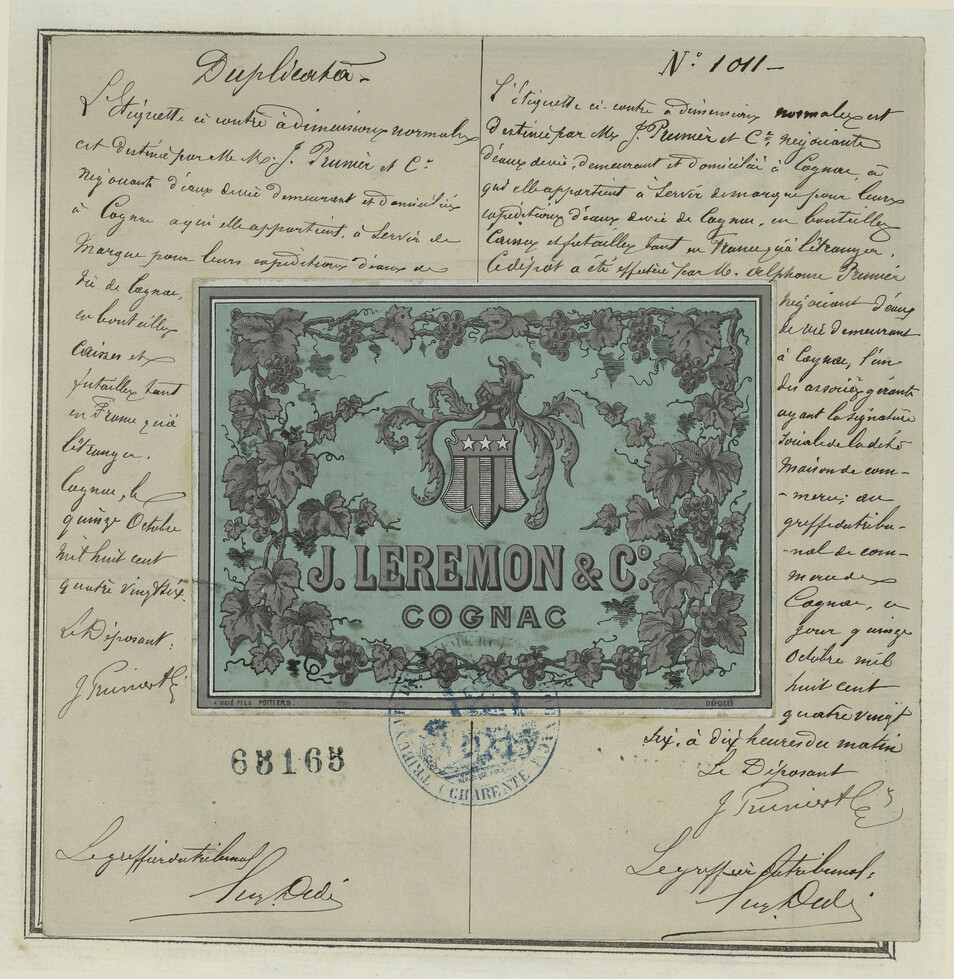 Duplicata
L'Etiquette ci contre à dimensions normales
est destinée par Me M. J. Prunier et Cie
négociants d'eaux de vie demeurant et domiciliés
à Cognac a qui elle appartient, à servir de
marque pour leurs expéditions d'eaux de
vie de Cognac,
en bouteilles
Caisses et
futailles tant
en France qu'à
l'étranger.
Cognac, le
quinze Octobre
mil huit cent
quatre vingt six
Le Déposant:
J. Prunier & Cie
N° 1011
L'étiquette ci-contre à dimensions normales est
destinée par MM. J. Prunier et Cie, négociants
d'eaux de vie, demeurant et domiciliés à Cognac, à
qui elle appartient à servir de marque pour leurs
expéditions d'eaux de vie de Cognac, en bouteilles
Caisses et futailles tant en France qu'à l'étranger.
Ce dépôt a été effectué par M. Alphonse Prunier
négociant d'eaux
de vie demeurant
à Cognac, l'un
des associés gérants
ayant la signature
sociale de la dite
maison de com-
-merce; au
greffe du tribu-
-nal de com-
merce de
Cognac, ce
jour quinze
Octobre mil
huit cent
quatre vingt
six, à dix heures du matin
Le Déposant
J. Prunier & Cie
J. LEREMON & Co.
COGNAC
DÉPOSÉ
65165
TRIBUNAL DE
COGNAC
(CHARENTE)
Le greffier du tribunal
Le greffier du tribunal: